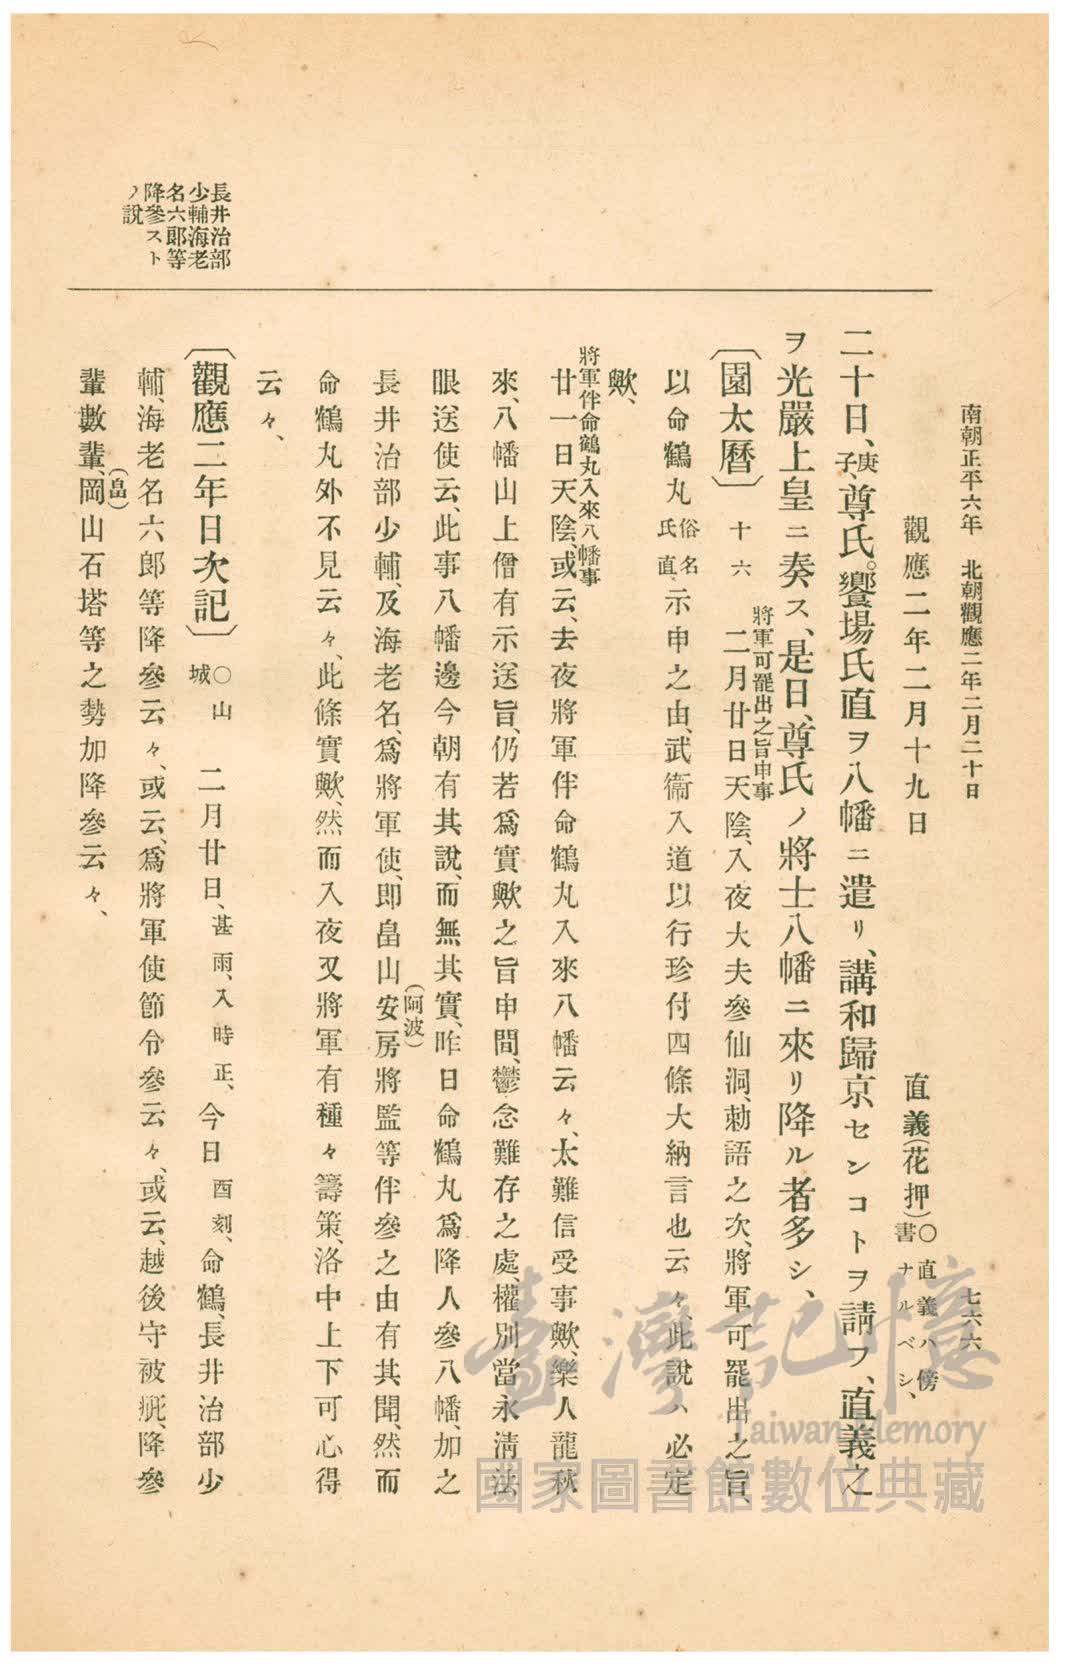 南朝正平六年 北朝觀應二年二月二十日
七六六
觀應二年二月十九日 直義(花押)○直義ハ傍書ナルベシ、
二十日、庚子、尊氏。饗場氏直ヲ八幡ニ遣リ、講和歸京センコトヲ請フ、直義之
ヲ光嚴上皇ニ奏ス、是日、尊氏ノ將士八幡ニ來リ降ル者多シ、
長井治部
少輔海老
名六郎等
降參スト
ノ說
將軍可罷出之旨申事
〔園太曆〕 十六 二月廿日天陰、入夜大夫參仙洞、勅語之次、將軍可罷出之旨、
以命鶴丸俗名氏直、示申之由、武衞入道以行珍付四條大納言也云々、此說ハ必定
歟、
將軍伴命鶴丸入來八幡事
廿一日天陰、或云、去夜將軍伴命鶴丸入來八幡云々、太難信受事歟、樂人龍秋
來、八幡山上僧有示送旨、仍若爲實歟之旨申間、鬱念難存之處、權別當永淸法
眼送使云、此事八幡邊今朝有其說、而無其實、昨日命鶴丸爲降人參八幡、加之
(阿波)
長井治部少輔及海老名、爲將軍使、即畠山安房將監等伴參之由有其聞、然而
命鶴丸外不見云々、此條實歟、然而入夜又將軍有種々籌策、洛中上下可心得
云々、
〔觀應二年日次記〕 ○山城 二月廿日、甚雨、入時正、今日酉刻、命鶴長井治部少
輔、海老名六郎等降參云々、或云、爲將軍使節令參云々、或云、越後守被疵、降參
(畠)
輩數輩、岡山石塔等之勢加降參云々、
臺灣記憶
Taiwan Memory
國家圖書館數位典藏